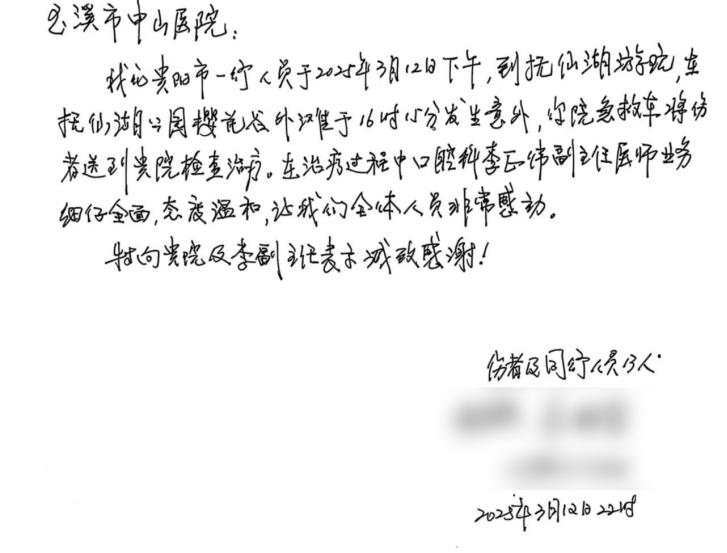 玉溪市中山医院:
我们贵阳市一行人员于2025年3月12日下午,到抚仙湖游玩,在
抚仙湖公园樱花谷外滩于16时15分发生意外,你院急救车将伤
者送到贵院检查治疗。在治疗过程中口腔科李正伟副主任医师业务
细仔全面,态度温和,让我们全体人员非常感动。
特向贵院及李副主任表示诚致感谢!
伤者及同行人员13人.
2025年3月12日22时